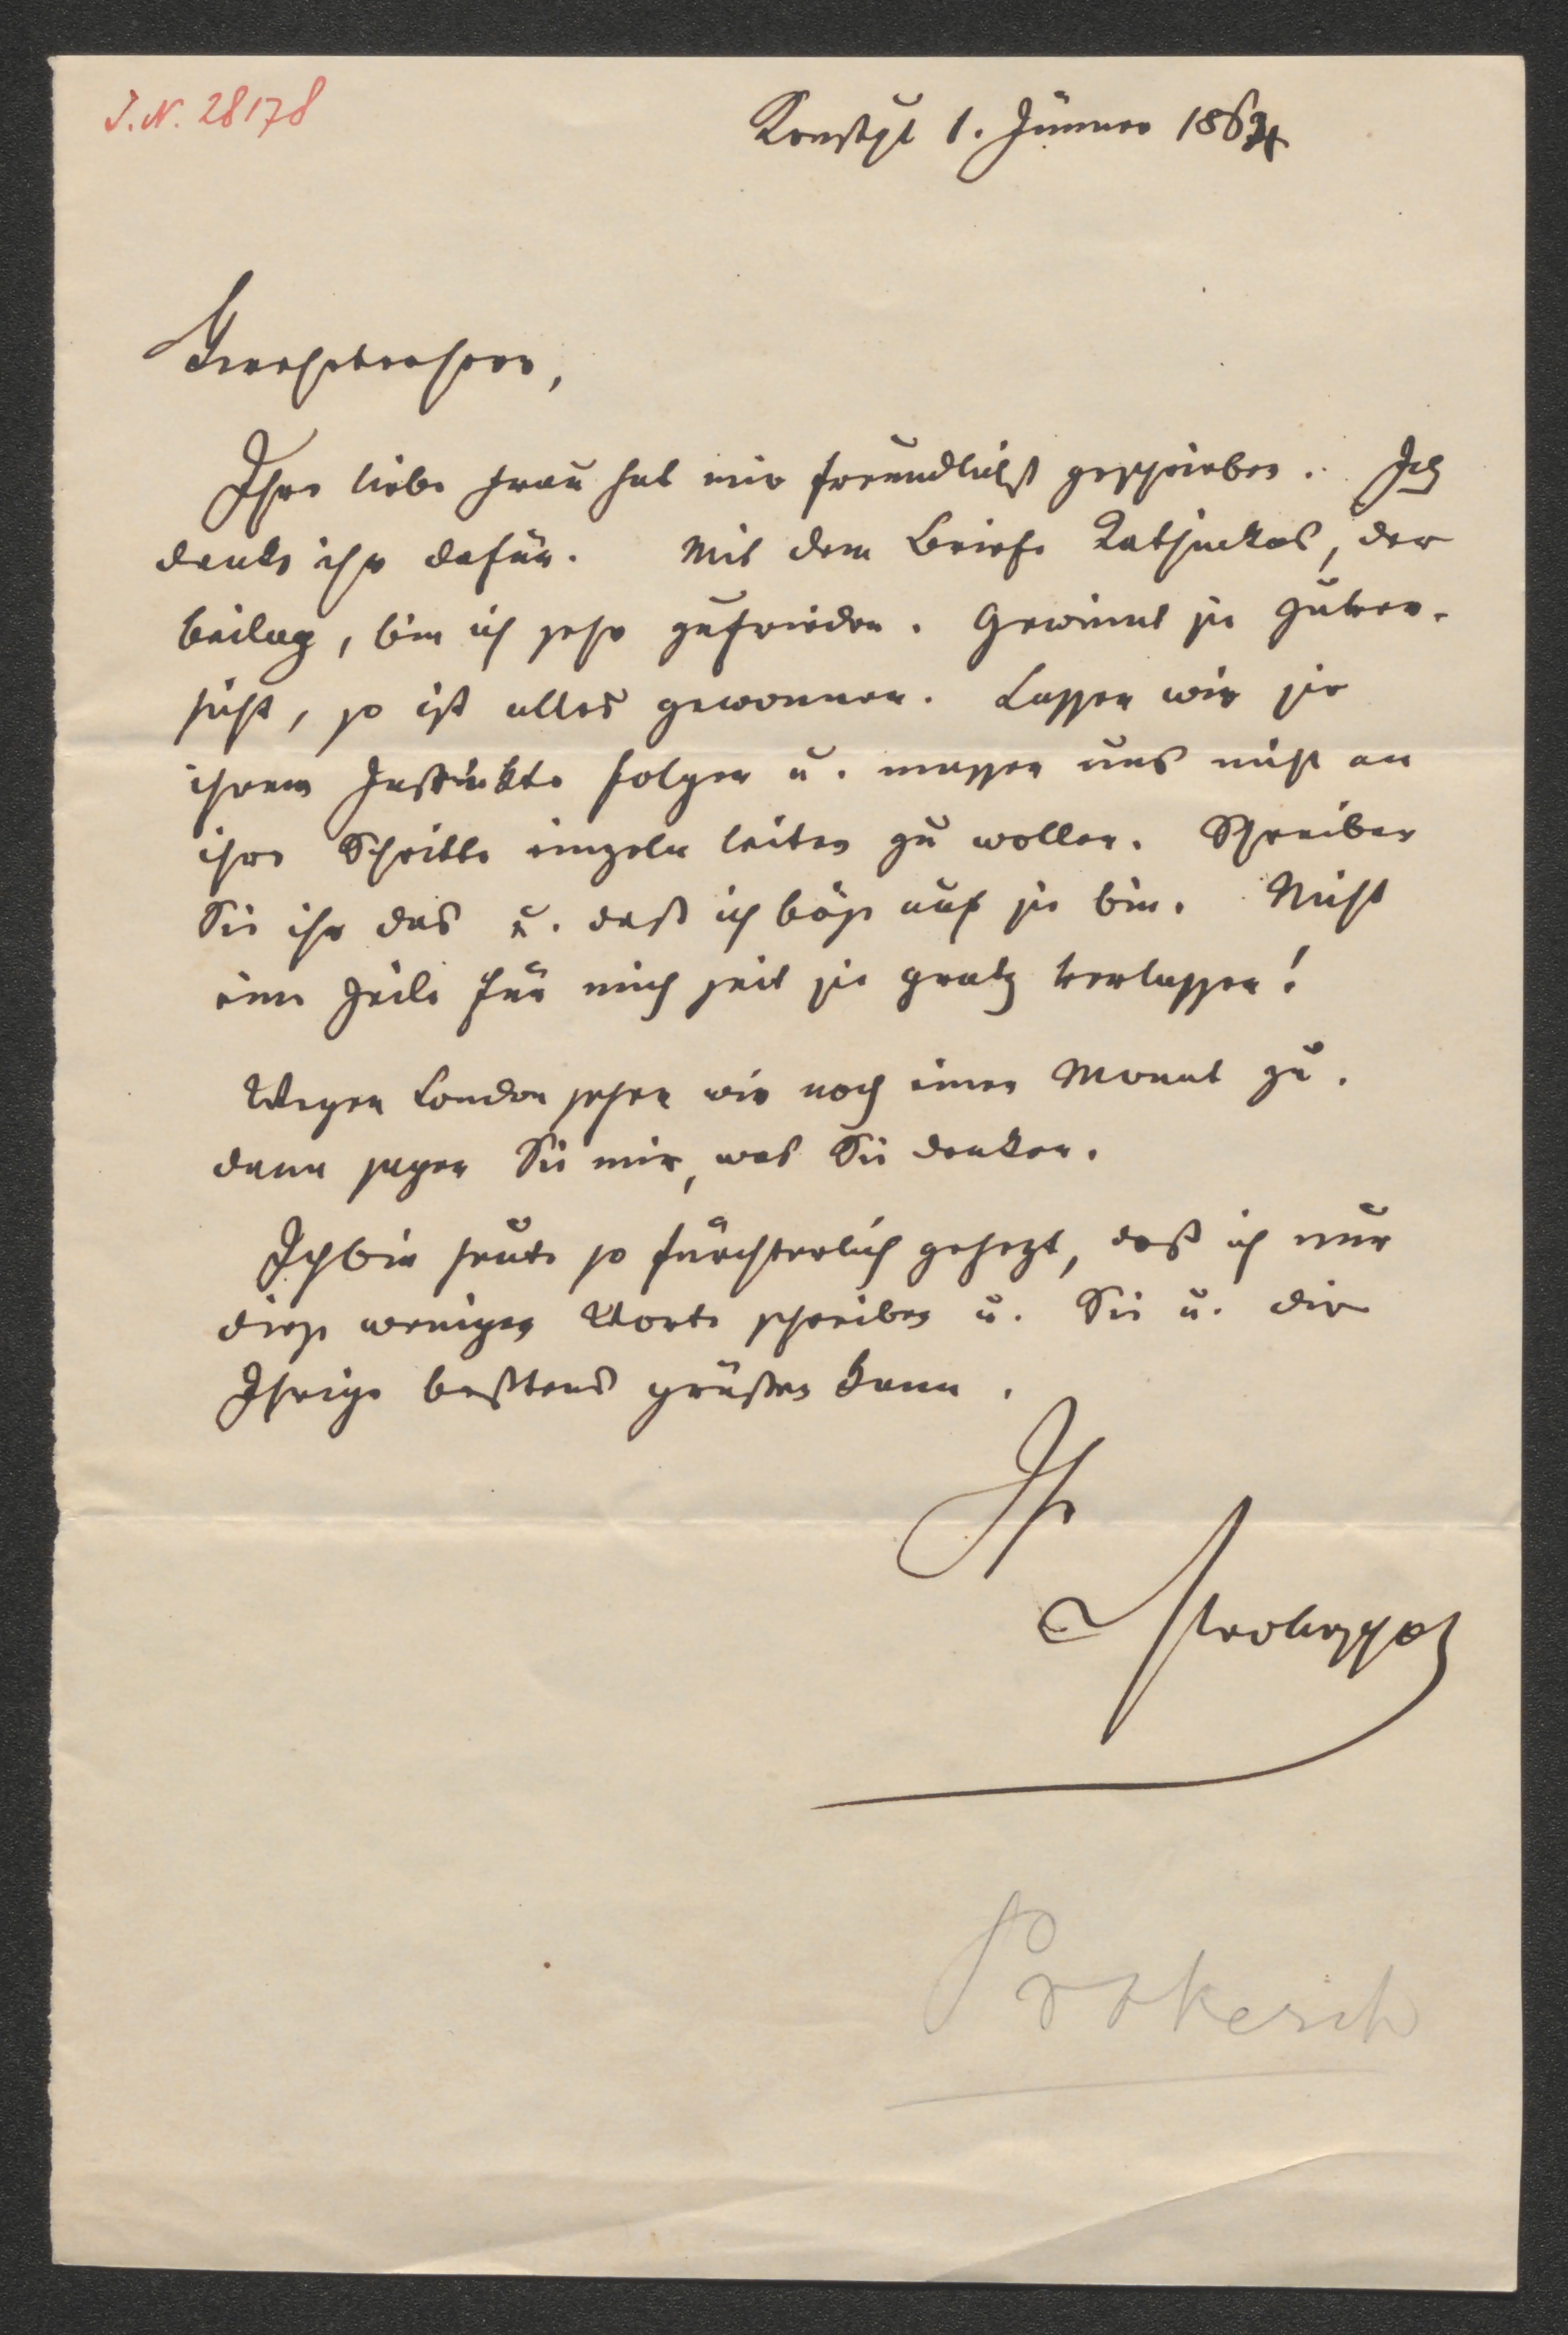 J. N. 28178
Konstpl 1. Jänner 1864
Verehrtester,
Ihre liebe Frau hat mir freundlichst geschrieben. Ich
danke ihr dafür. Mit dem Briefe Kathinkas, der
beilag, bin ich sehr zufrieden. Gewinnt sie Zuver-
sicht, so ist alles gewonnen. Lassen wir sie
ihrem Instinkte folgen u. maßen uns nicht an
ihre Schritte einzeln leiten zu wollen. Schreiben
Sie ihr das u. daß ich böse auf sie bin. Nicht
eine Zeile für mich seit sie Gratz verlassen!
Wegen London sehen wir noch einen Monat zu.
dann sagen Sie mir, was Sie denken.
Ich bin heute so fürchterlich gehezt, daß ich nur
diese wenigen Worte schreiben u. Sie u. die
Ihrige besstens grüßen kann.
Ihr
Prokesch